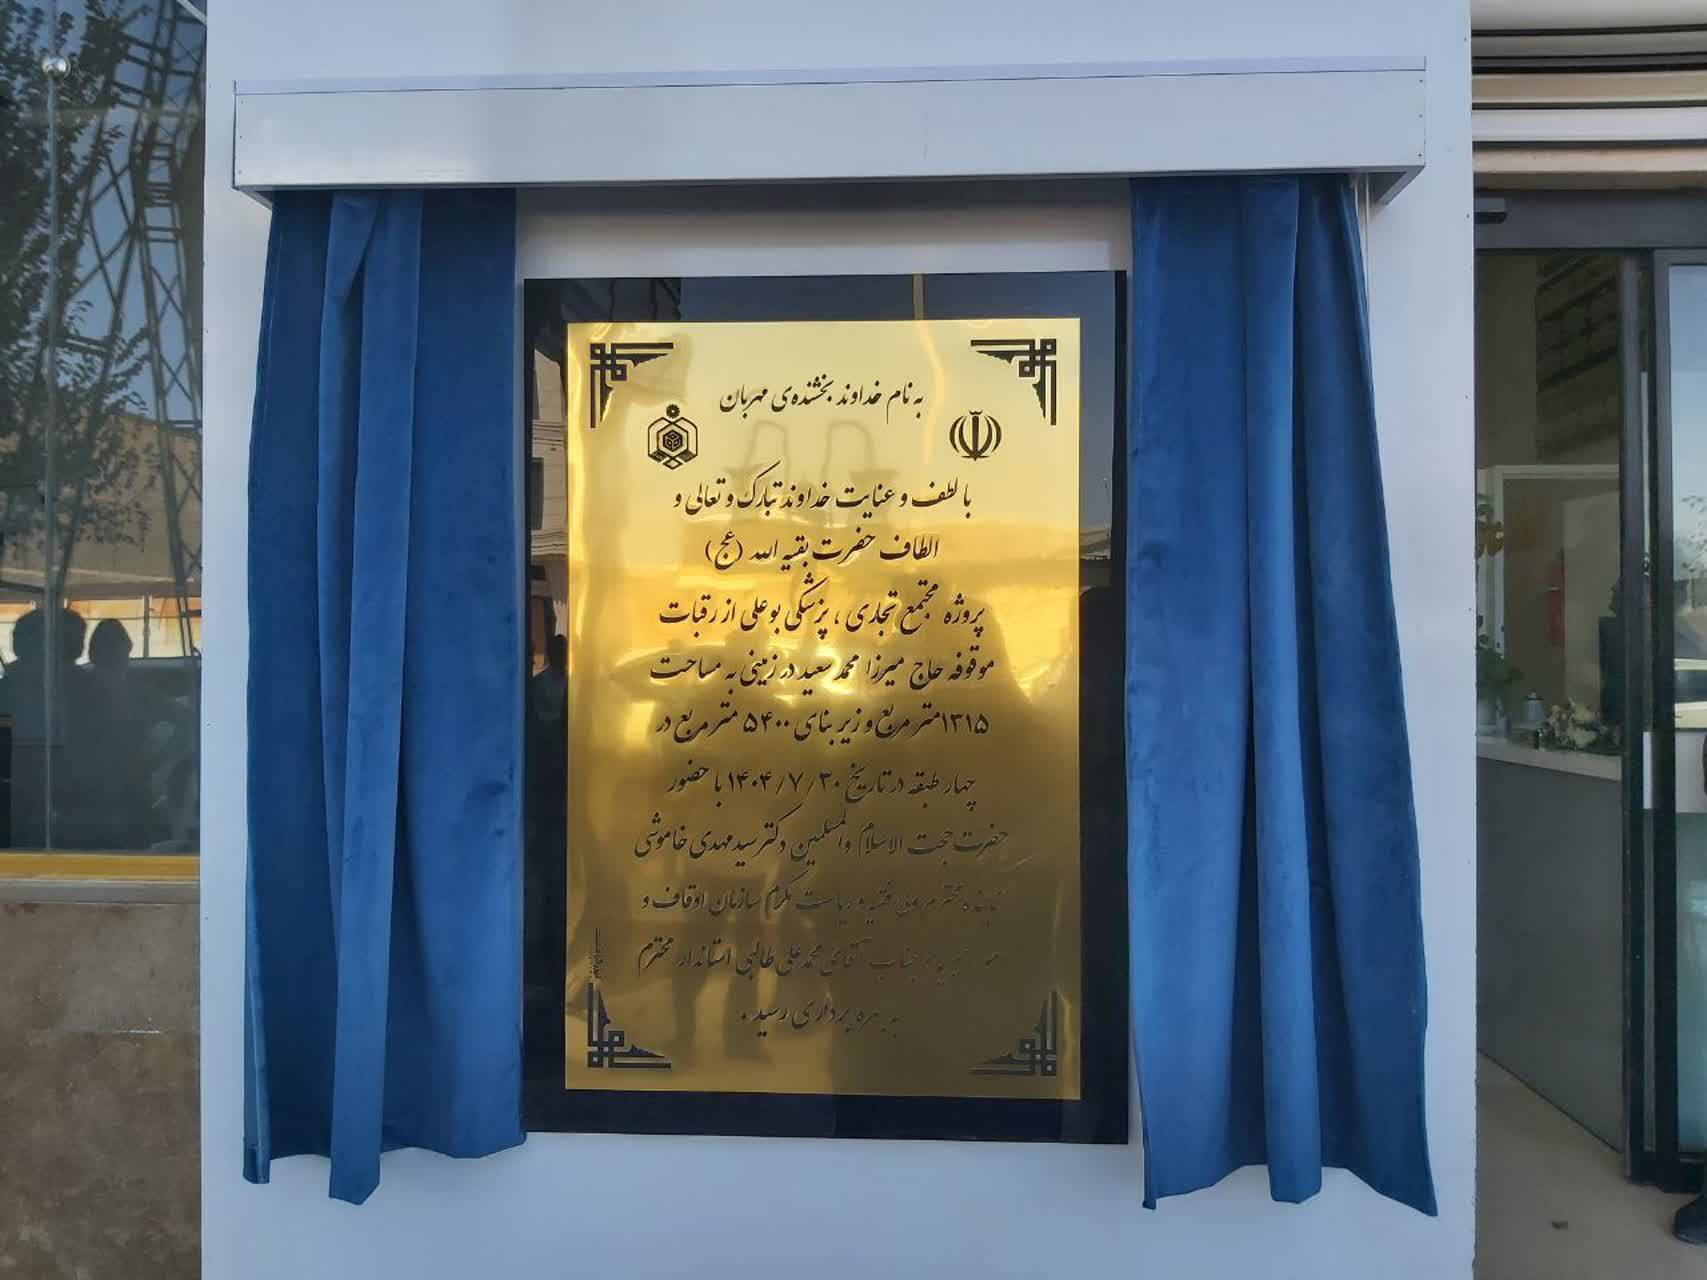 به نام خداوند بخشنده‌ی مهربان
با لطف و عنایت خداوند تبارک و تعالی و
الطاف حضرت بقیه الله (عج)
پروژه مجتمع تجاری ، پزشکی بوعلی از رقبات
موقوفه حاج میرزا محمد سعید در زمینی به مساحت
۱۳۱۵متر مربع و زیر بنای ۵۴۰۰ متر مربع در
چهار طبقه در تاریخ ۱۴۰۴/۷/۳۰ با حضور
حضرت حجت الاسلام والمسلمین دکتر سید مهدی خاموشی
نماینده محترم ولی فقیه و ریاست مکرم سازمان اوقاف و
امور خیریه و جناب آقای محمد علی طالبی استاندار محترم
به بهره برداری رسید .